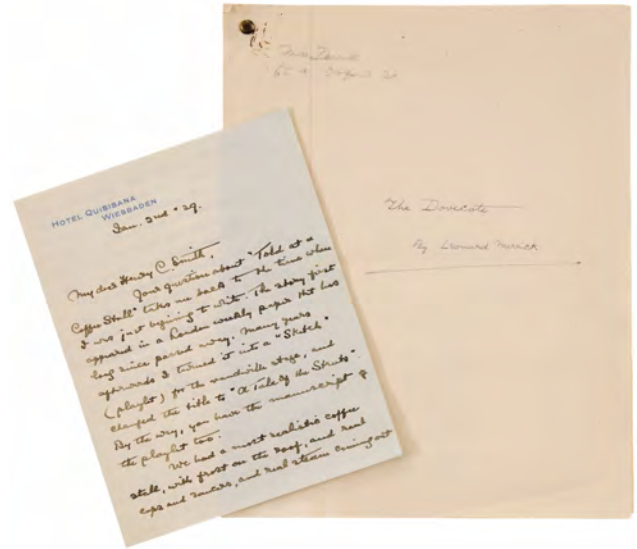 HOTEL QUISISANA
WIESBADEN
Jan. 2nd '29.
My dear Henry C. Smith,
Your question about "Told at a
Coffee Stall" takes me back to the time when
I was just begining to write. The story first
appeared in a London weekly paper that has
long since passed away. Many years
afterwards I turned it into a "Sketch"
(playlet) for the vaudeville stage, and
changed the title to "A Tale of the Streets".
By the way, you have the manuscript of
the playlet too.
We had a most realistic coffee
stall, with frost on the roof, and real
cups and saucers, and real steam coming out
The Dovecote
By Leonard Merrick